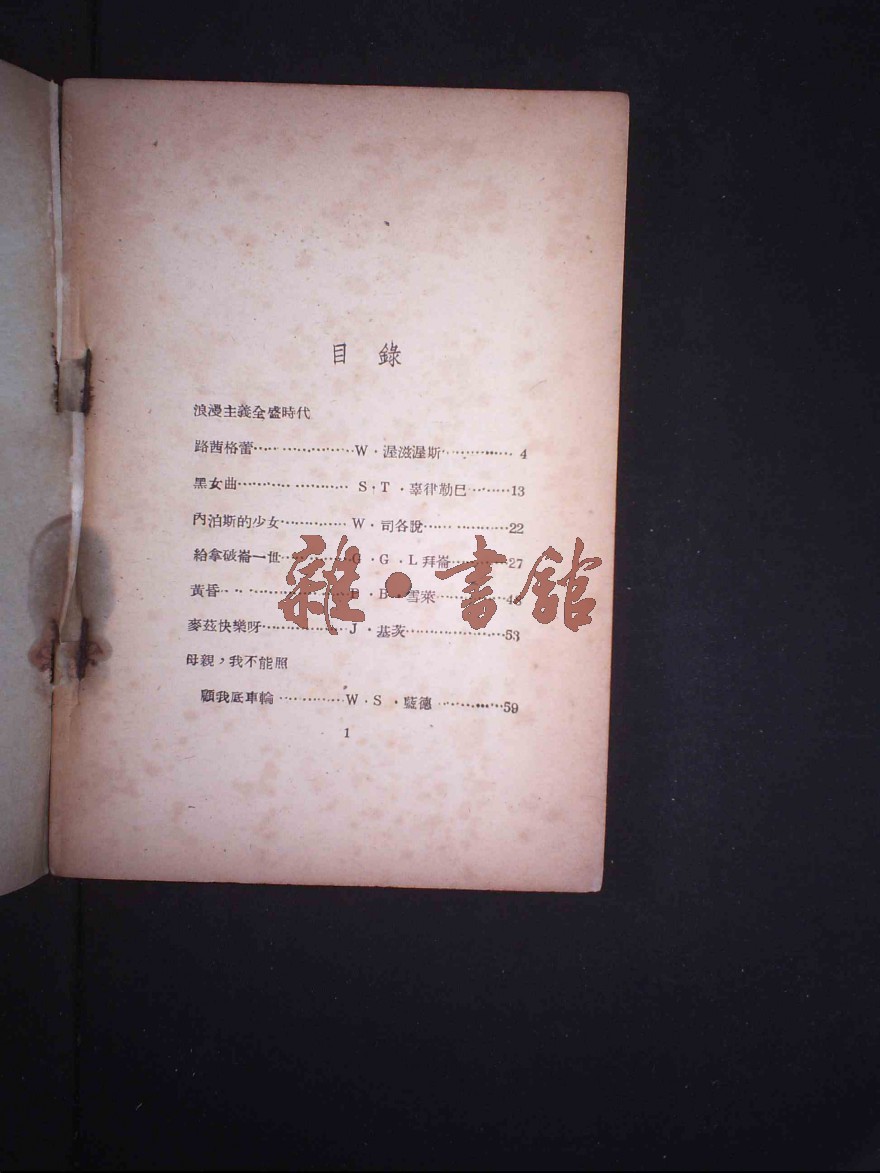 目 錄
浪漫主義全盛時代
路茜格蕾……………W·渥滋渥斯…………4
黑女曲……………S·T·辜律勒已………13
內泊斯的少女…………W·司各脫……………22
給拿破崙一世…………G·G·L拜崙…………27
黃昏……………B·雪萊…………
麥茲快樂呀……………J·基茨………………53
母親，我不能照
顧我底車輪…………W·S·藍德…………59
1
雜·書館